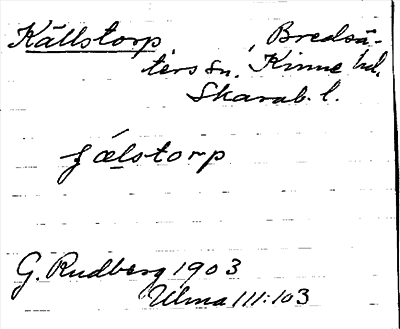 Källstorp, Bredsä-
ters sn. Kinne hd.
Skarab. l.
G. Rudberg 1903
Ulma 111:103